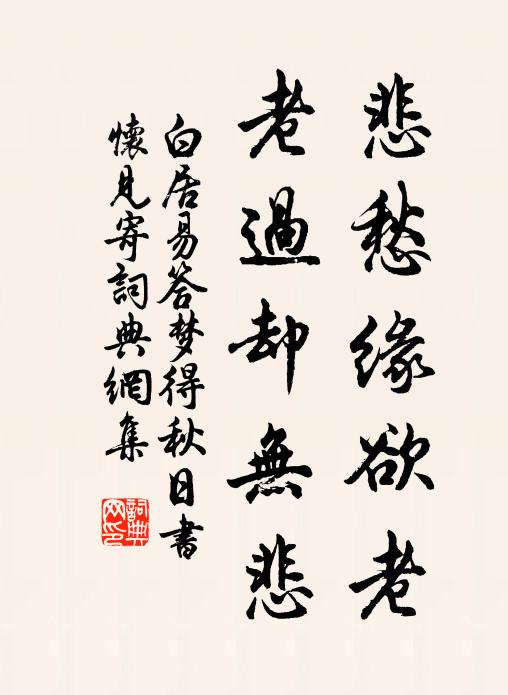 悲愁緣欲老
老過却無悲
白居易答梦得秋日書
懷見寄詞典網集
詞典网印